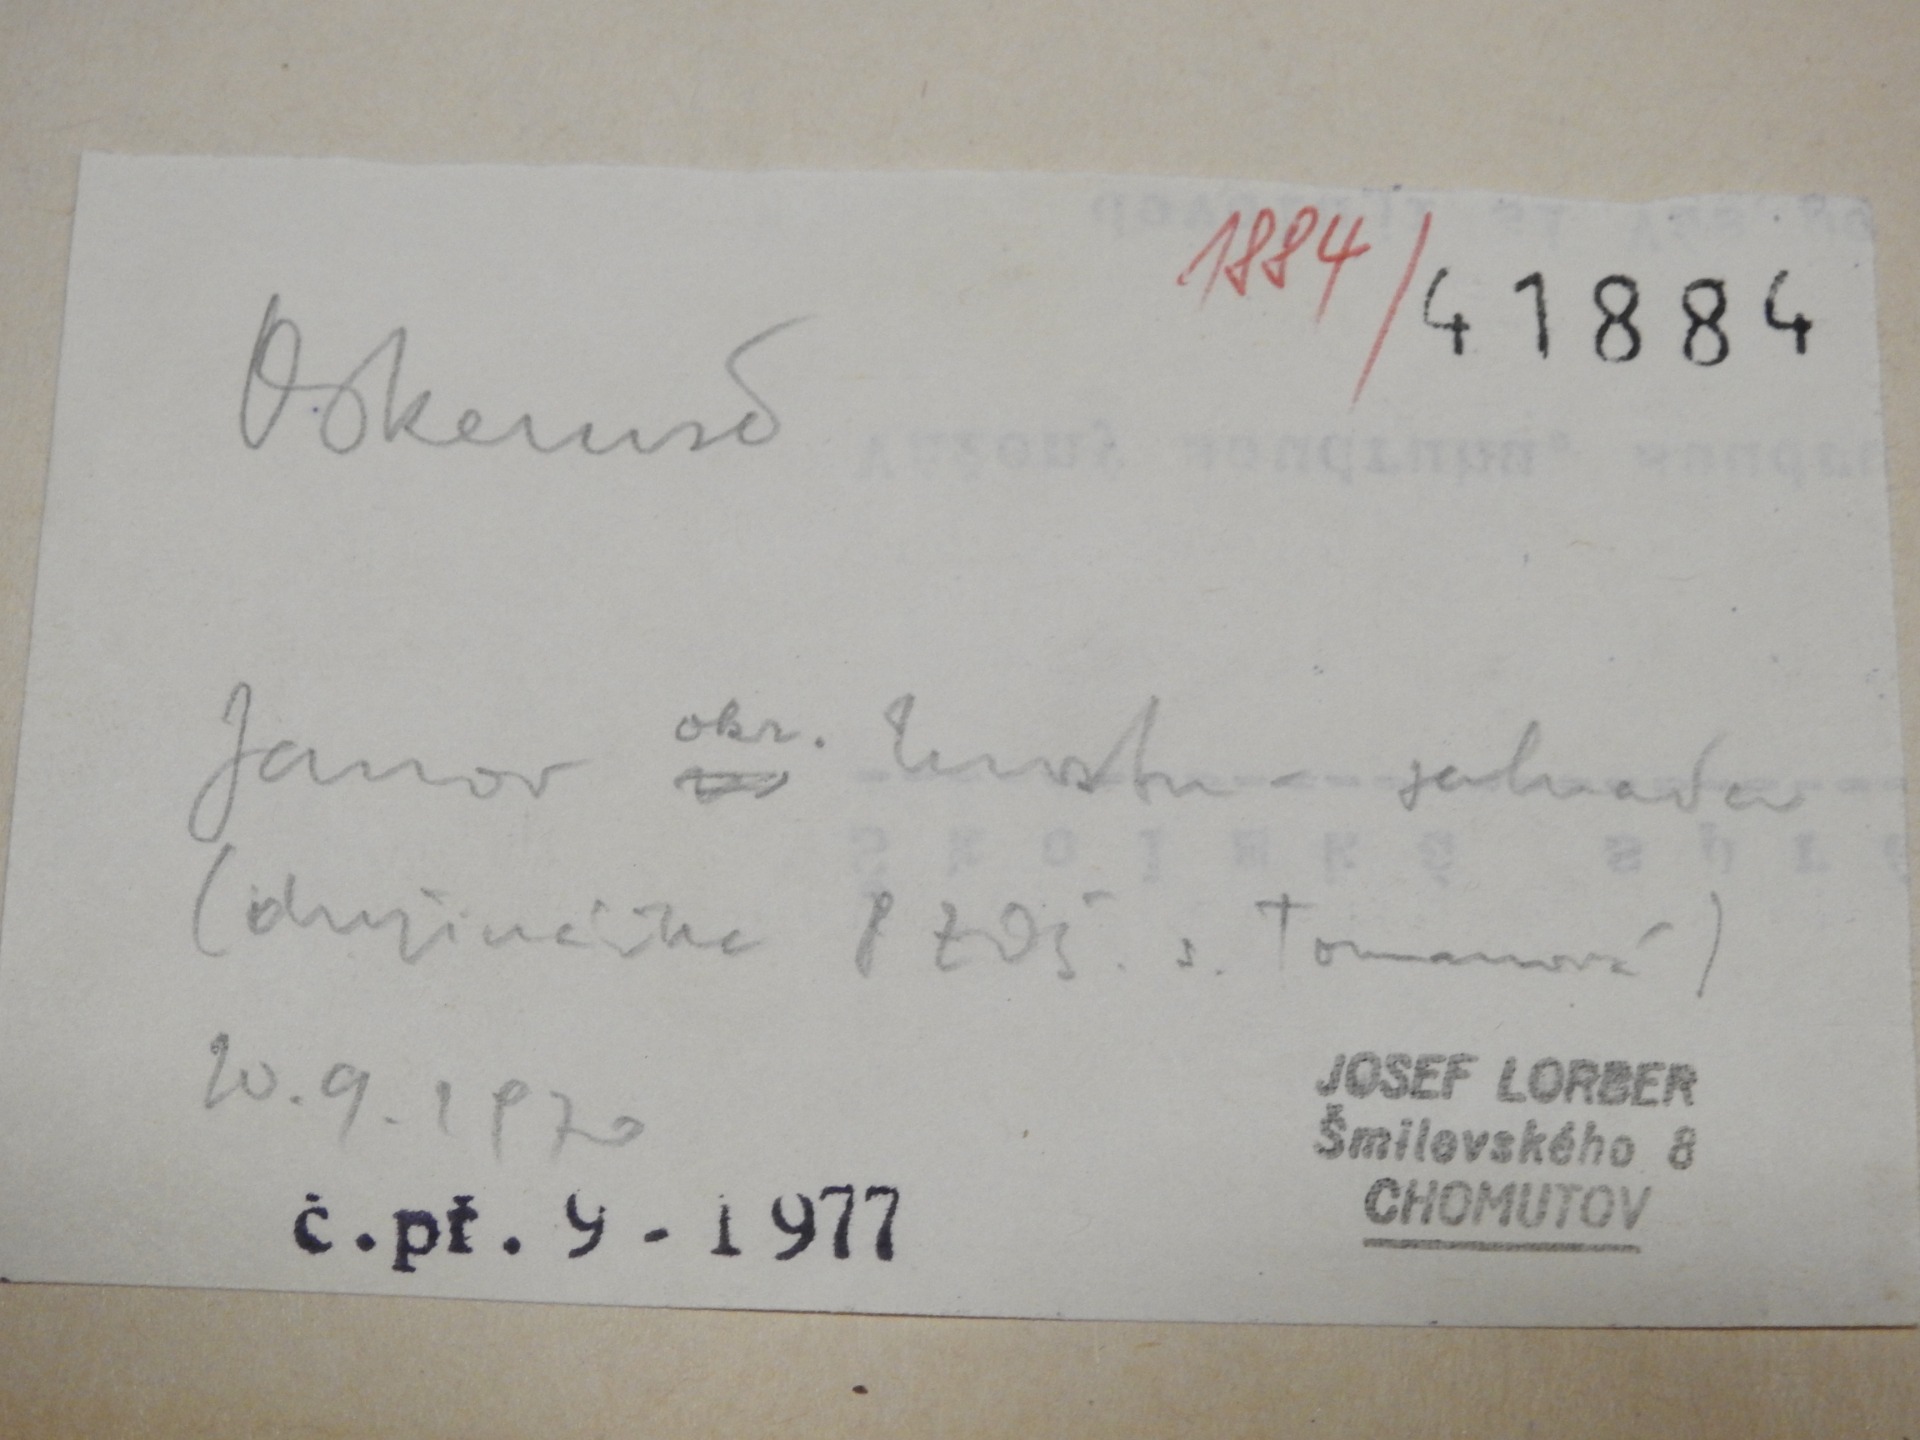 1884/41884
Oskeruše
Janov okr. Mostu - zahrada
(družinářka ZDŠ. s. Tomanová)
20.9.1970
č.př. 9 - 1977
JOSEF LORBER
Šmilovského 8
CHOMUTOV